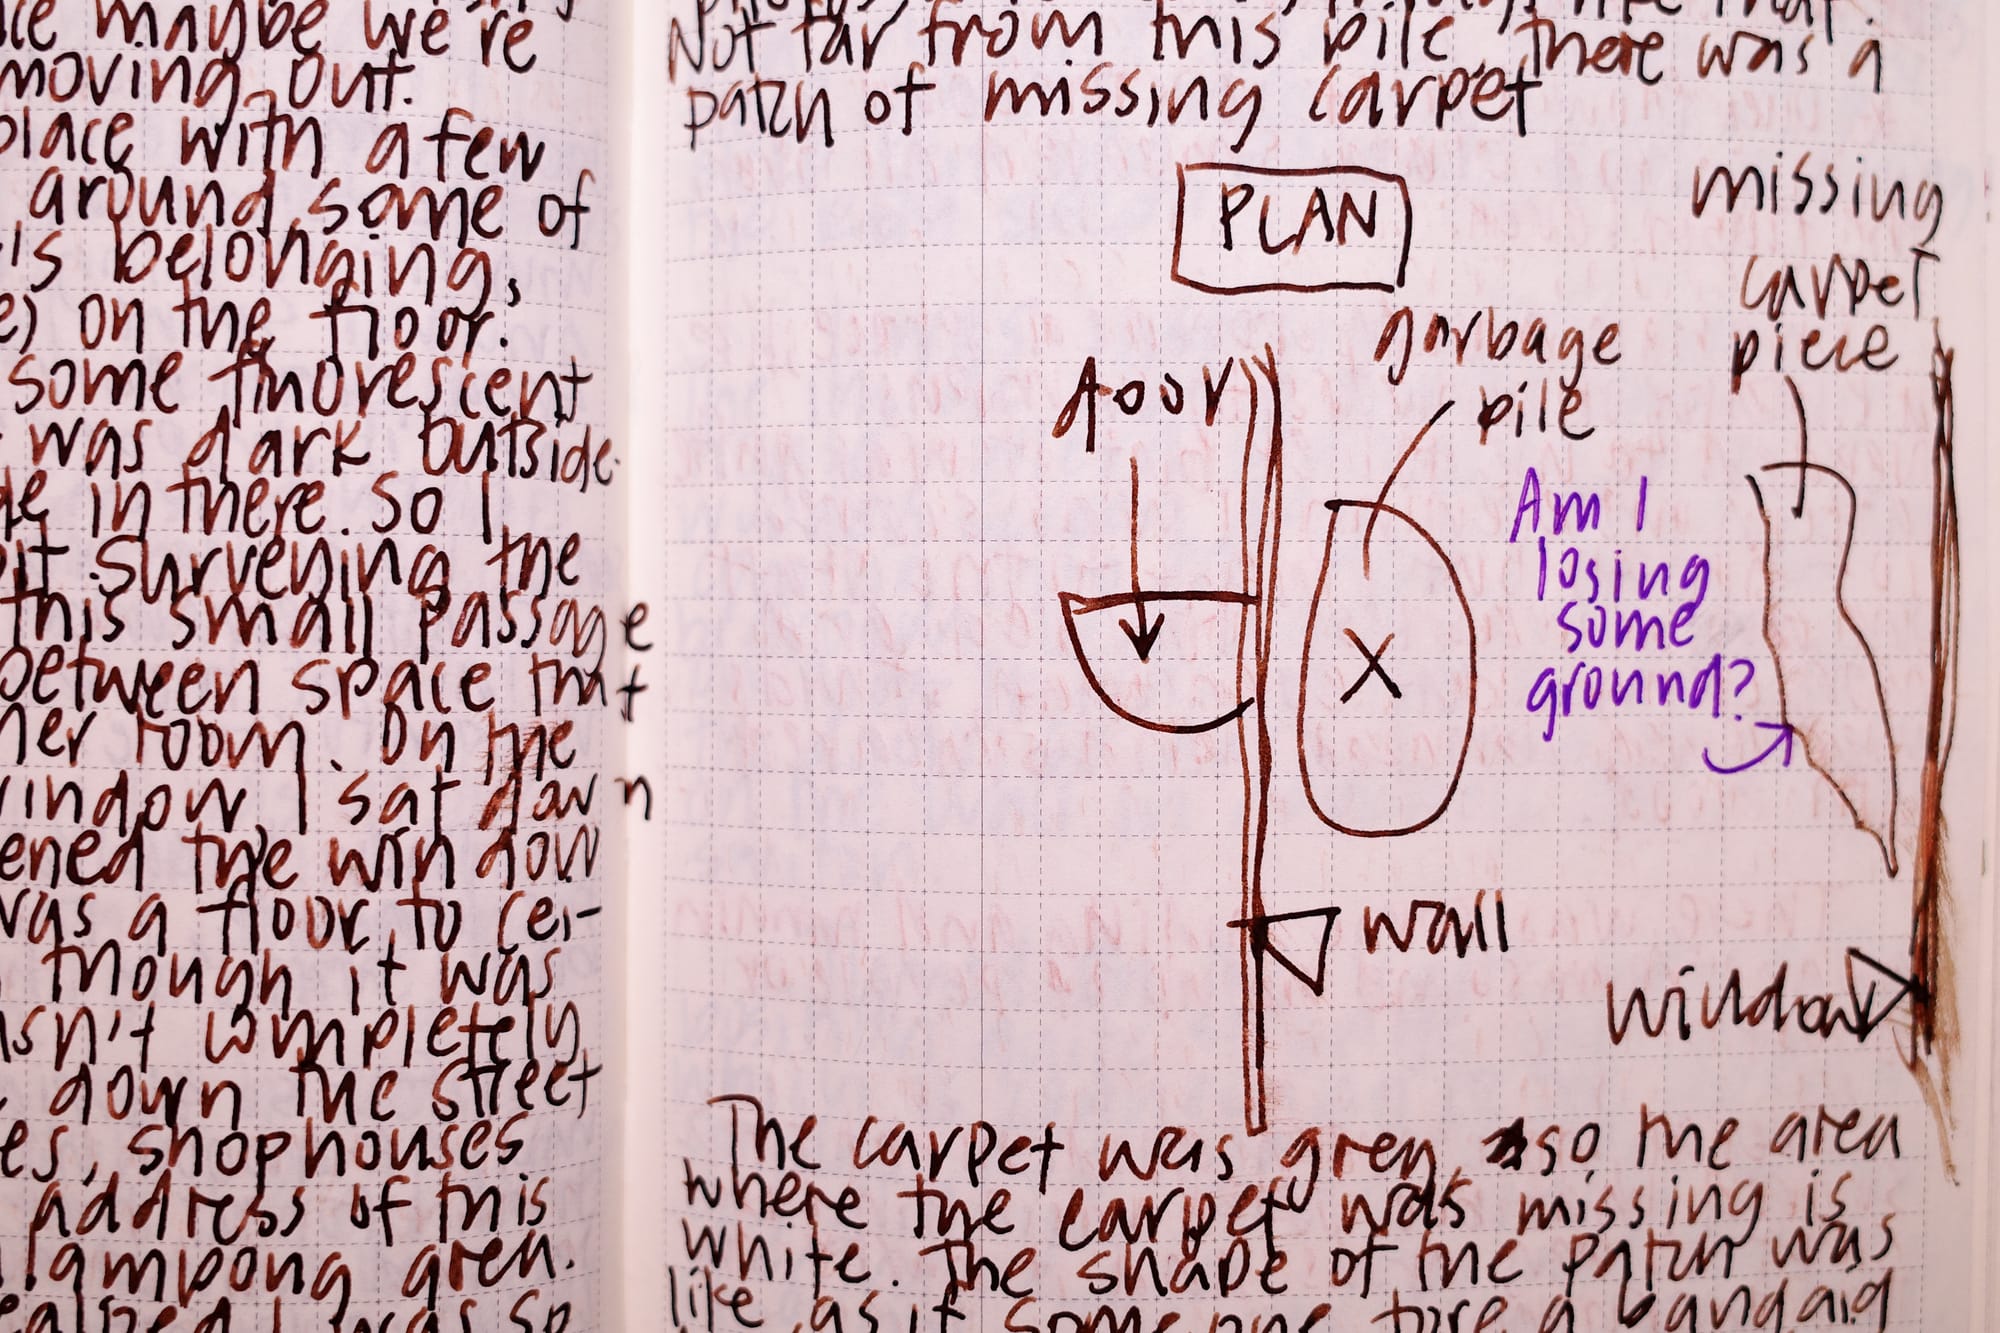 maybe we're
moving out.
place with a few
around some of
's belonging,
on the floor.
some fluorescent
was dark outside.
in there. so I
surveying the
this small passage
between space that
her room. On the
window I sat down
ened the window
was a floor to cei-
though it was
sn't completely
down the street
es, shophouses
address of this
lampong area.
I was so
Not far from this pile, there was a
patch of missing carpet
PLAN
missing
carpet
piece
garbage
pile
door
Am I
losing
some
ground?
X
wall
window
The carpet was grey, so the area
where the carpet was missing is
white. The shape of the patch was
like as if someone tore a bandaid